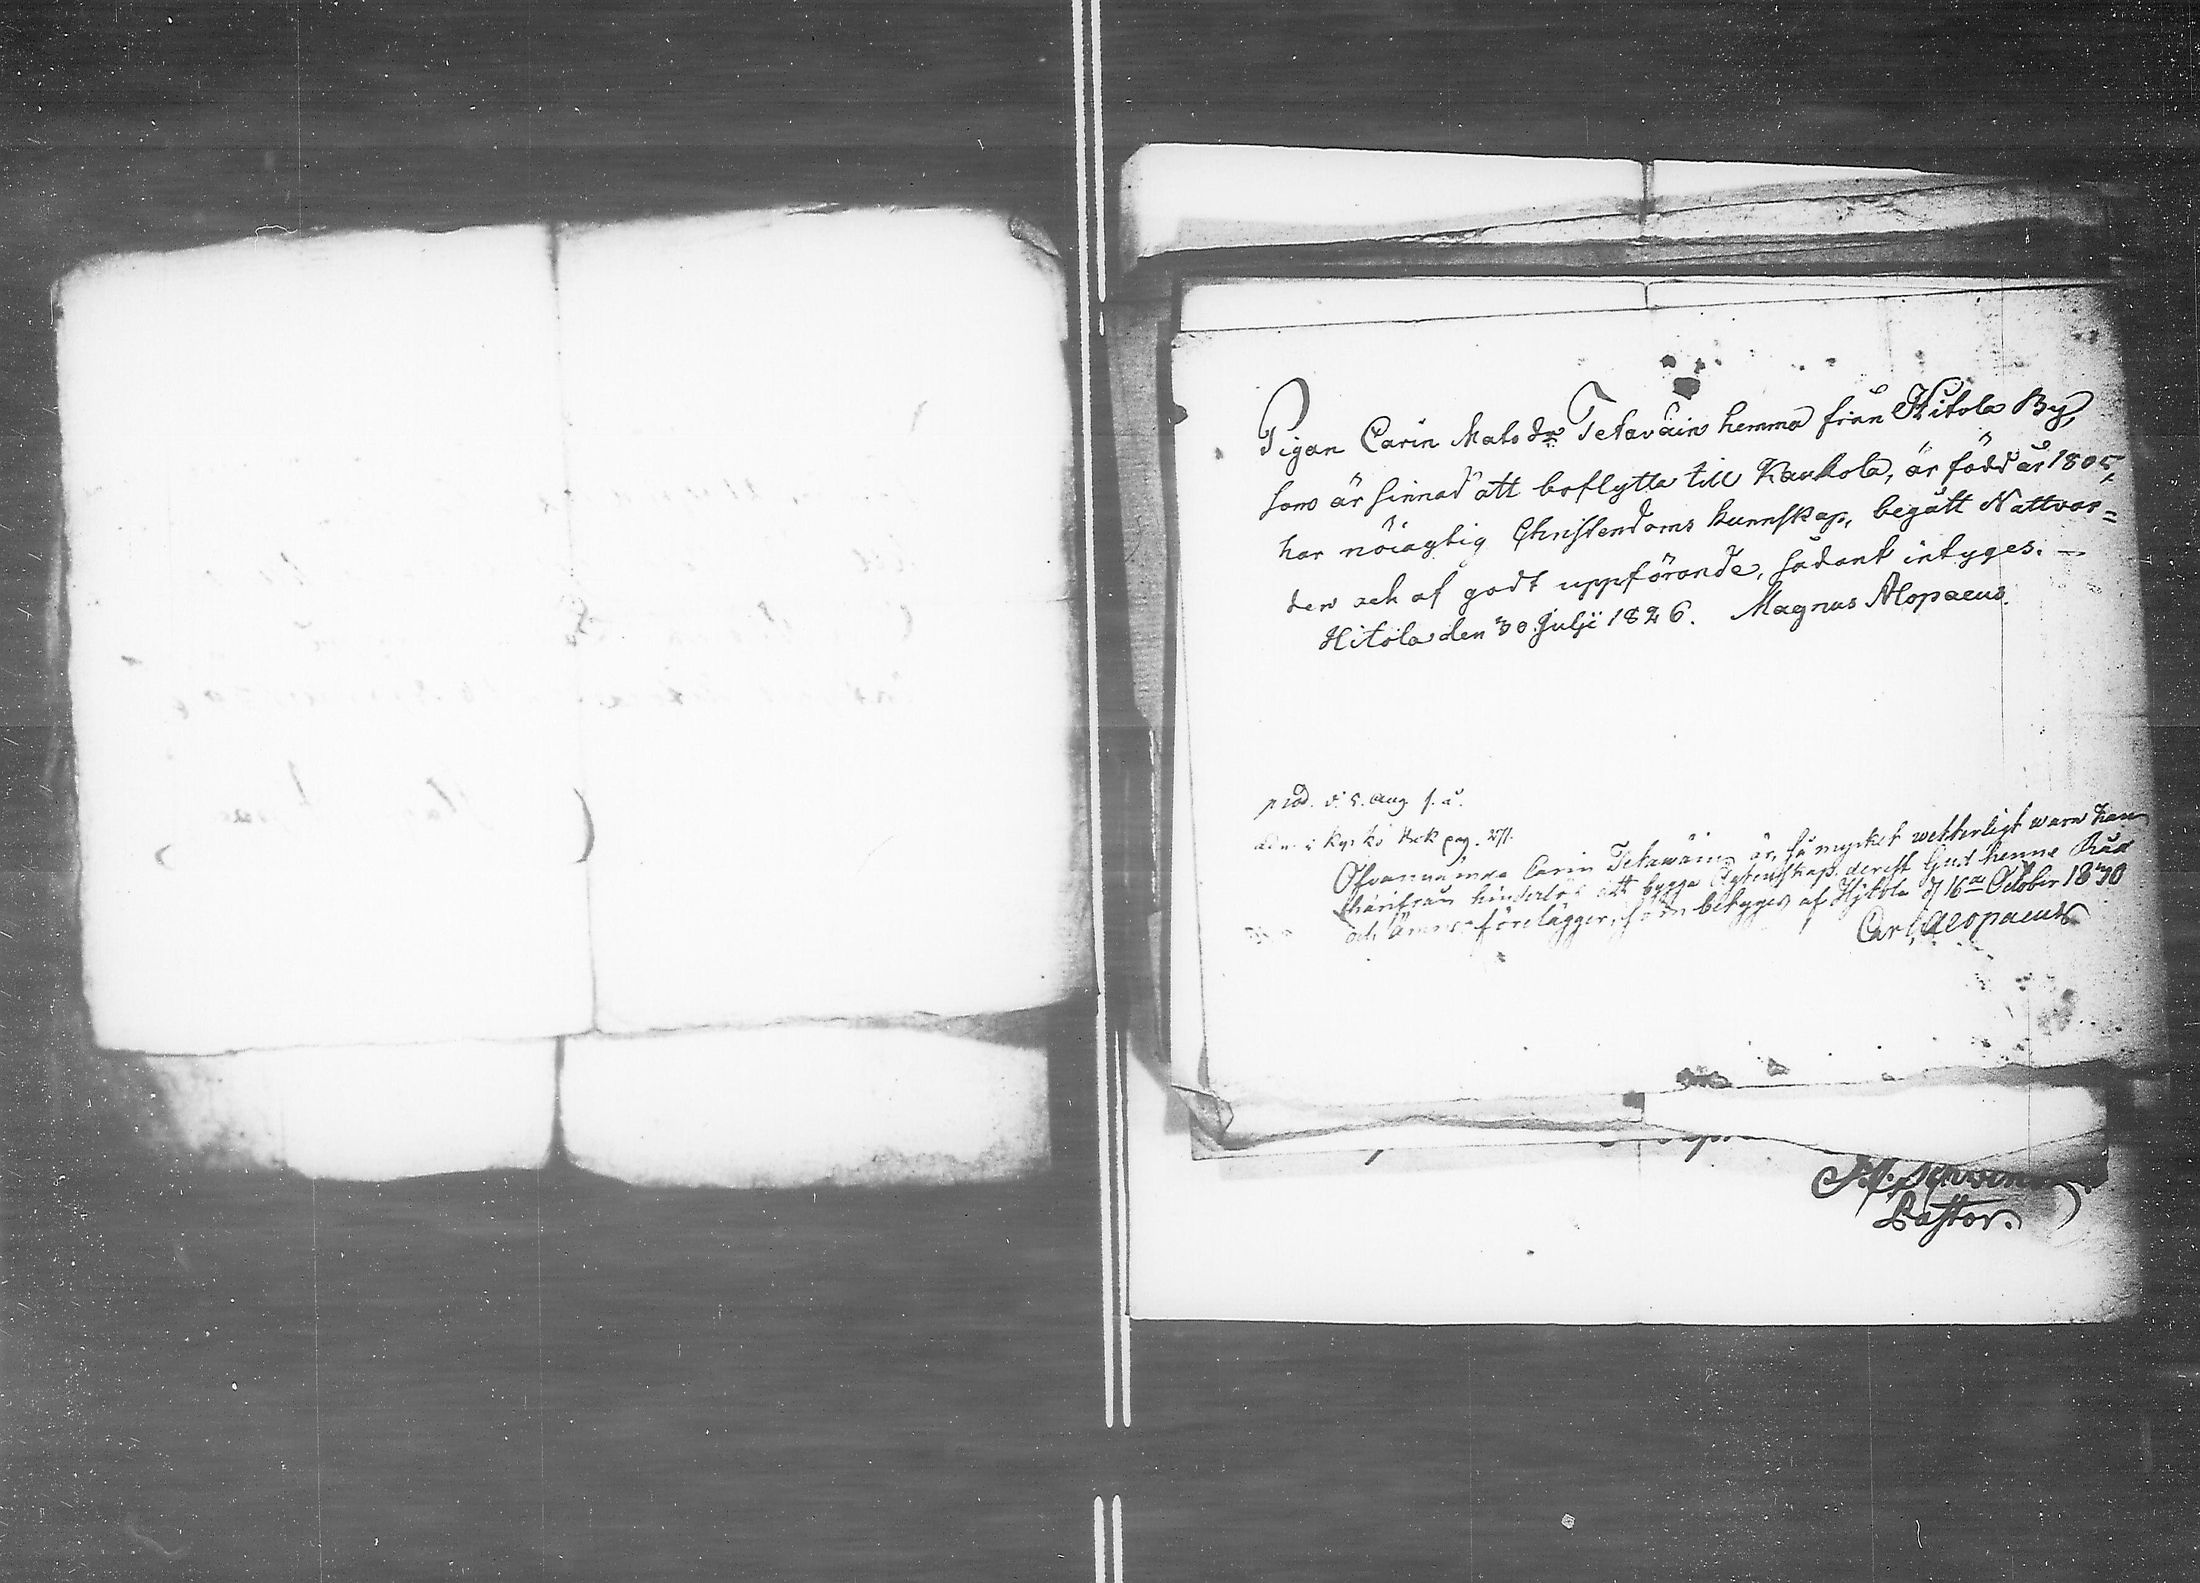 Pigan Carin Mats dr Tetaväin hemma från Hitola By,
som är sinnad att boflytta till Kaukola, är född år 1805,
har nöiagtig Christendoms kunnskap, begått Nattvar=
den och af godt uppförande, sådant intyges. —
Hitola den 30 Julji 1826. Magnus Alopaeus.
prod. d. 5. Aug. s. å.
pag. 271.
Ofvannämnde Carin Tetawäin är, så mycket wetterligt warit kan
härifrån hinderlös att bygga Ägtenskap, derest Gud henne Råd
och Ämne förelägger, som betyges af Hjtola d 16de October 1830
Carl Alopaeus
Pastor.